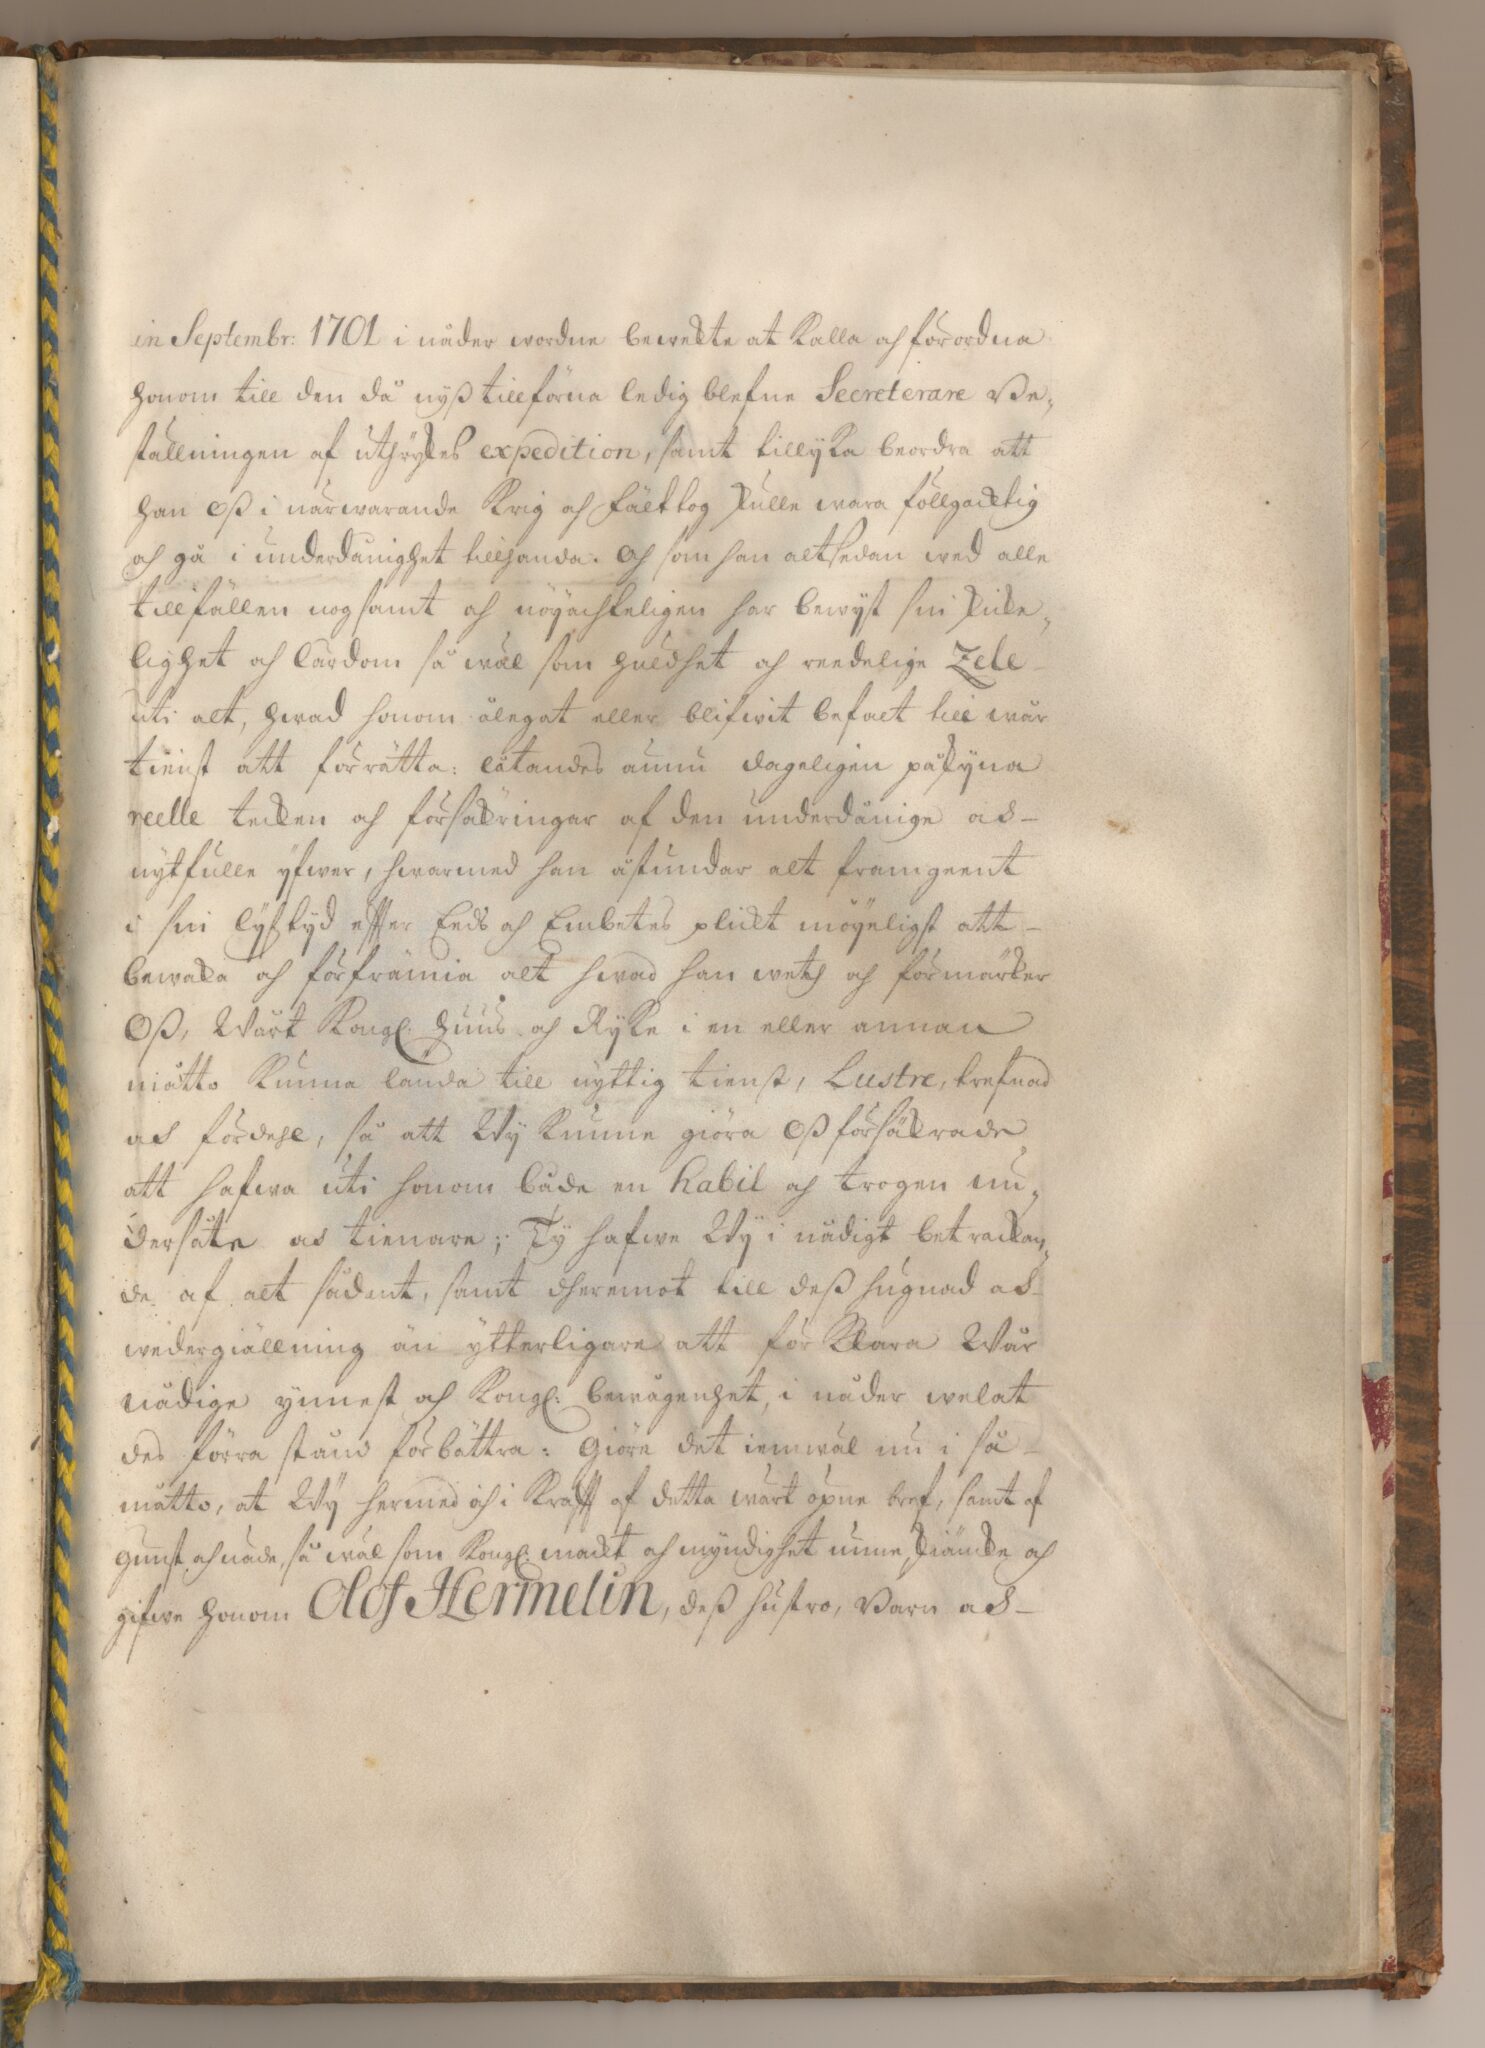 in Septembr: 1701 i nåder wordne bewekte at kalla och förordna
honom till den då nyß tillförna ledig blefne Secreterare Be,
ställningen af uthrykes expedition, samt tillyka beordra att
han Oß i närwarande Krig och fälttog skulle wara föllgachtig
och gå i underdånighet tillhanda. Och som han altsedan wed alle
tillfällen nogsamt och nöyachteligen har bewyst sin skicke,
lighet och lärdom så wäl som huldhet och reedelige Zele
uti alt, hwad honom ålegat eller blifwit befalt till wår
tienst att förrätta: låtandes ännu dageligen påskyna
reelle tecken och försäkringar af den underdånige och
nytfulle yfwer, hwarmed han åstundar alt framgeent
i sin lyfstyd effter Eeds och Embetes plicht möyeligst att
bewaka och förfrämia alt hwad han wetth och förmärker
Oß, Wårt Kongl. Huus och Ryke i en eller annan
måtto kunna lända till nyttig tienst, Lustre, trefnad
och fördehl, så att Wy kunne giöra Oß försäkrade
att hafwa uti honom både en habil och trogen un,
dersåte och tienare; Ty hafwe Wy i nådigt betrachtan,
de af alt sådant, samt dheremot till deß hugnad och
wedergiällning än ytterligare att förklara Wår
nådige ynnest och Kongl: bewågenhet, i nåder welat
des förra stånd förbättra: Giöre det iemwäl nu i så
måtto, at Wy hermed och i krafft af detta wårt öpne bref, samt af
gunst och nåde, så wäl som Kongl: macht och myndighet unne, skiäncke och
gifwe honom Olof Hermelin, deß hustro, Barn och